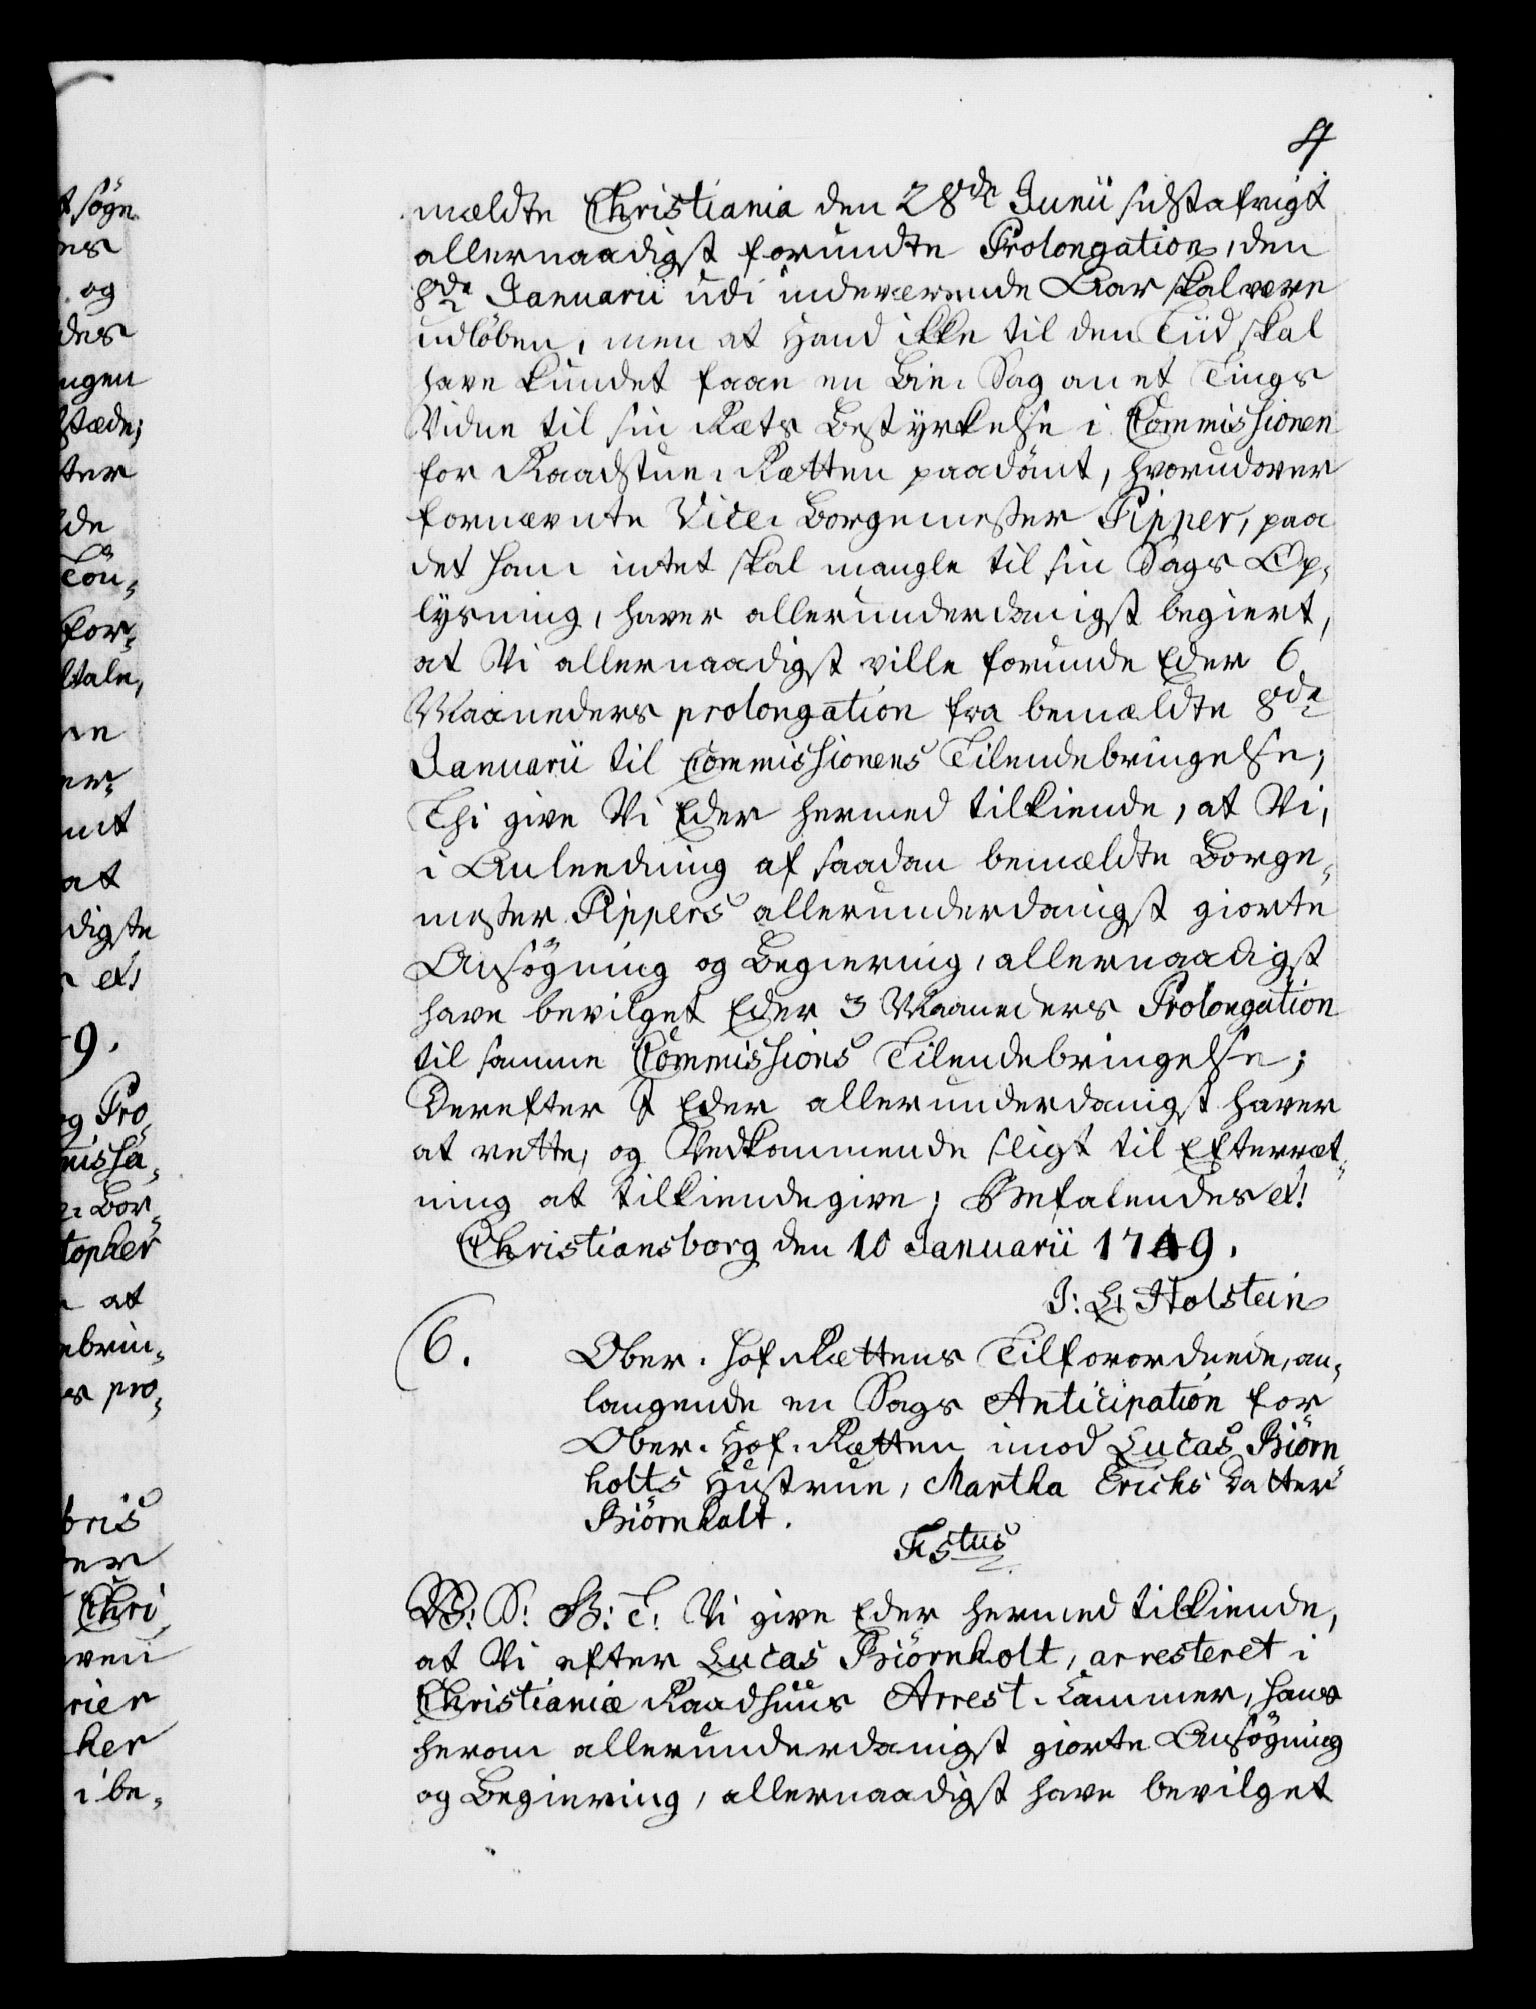 4
t søgn
es
og
des
ngen
stæde;
ter
de
Tön,
for,
tale,
en
er,
mt
at
digste
et,
9.
og Pro,
missa,
Bor,
topher
at
ebrin,
pro,
bris
er
Chri,
ven
rier
ker
i be,
mældte Christiania den 28de Junii sidstafvigt
allernaadigst forundte Prolongation, den
8de Januarii udi indeværende Aar skal være
udlöben, men at Hand ikke til den Tiid skal
have kundet faae en bie-Sag om et Tings
Vidne til sin Rets Bestyrkelse i Commissionen
for Raadstue-Retten paadömt, hvorudover
fornævnte Vice-Borgemester Pipper, paa
det ham intet skal mangle til sin Sags Op,
lysning, haver allerunderdanigst begiert,
at Vi allernaadigst ville forunde Eder 6
Maaneders prolongation fra bemældte 8de
Januarii til Commissionens Tilendebringelse;
Thi give Vi Eder hermed tilkiende, at Vi,
i Anleedning af saadan bemældte Borge,
mester Pippers allerunderdanigst giorte
Ansögning og Begiering, allernaadigst
have bevilget Eder 3 Maaneders Prolongation
til samme Commissions Tilendebringelse;
Derefter I Eder allerunderdanigst haver
at rette, og Vedkommende sligt til Efterret,
ning at tilkiendegive; Befalendes et!
Christiansborg den 10 Januarii 1749.
J: L: Holstein
6.
Ober-Hof-Rettens Tilforordnede, an,
langende en Sags Anticipation for
Ober-Hof-Retten imod Lucas Biörn
holts Hustrue, Martha Erichs Datter
Biörnholt.
Fistus
V: S: G: T: Vi give Eder hermed tilkiende,
at Vi efter Lucas Biörnholt, arresteret i
Christianiæ Raadhuus Arrest-Kammer, hans
herom allerunderdanigst giorte Ansögning
og Begiering, allernaadigst have bevilget